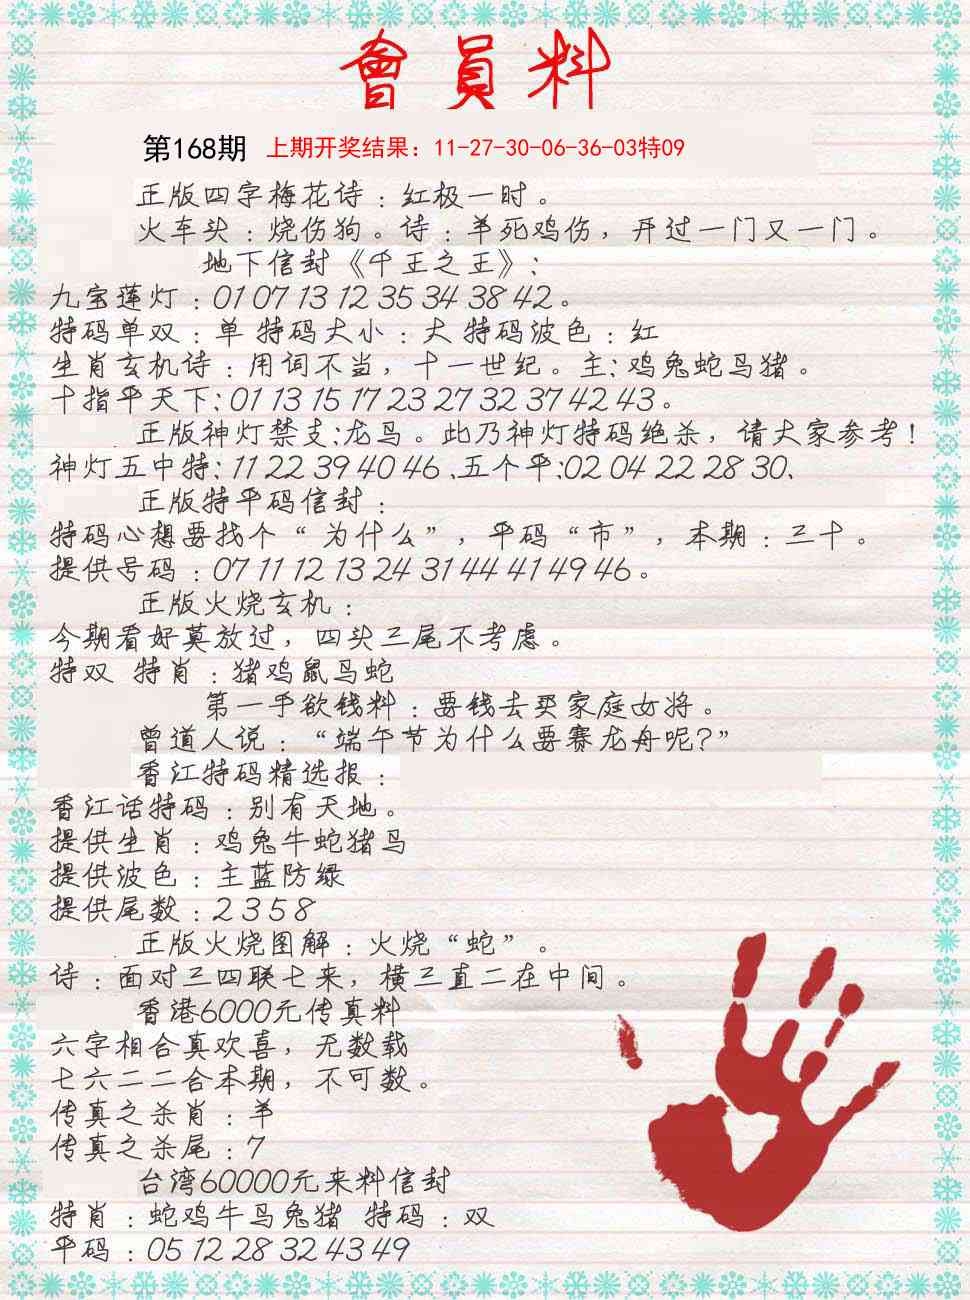 會員料
第168期 上期开奖结果：11-27-30-06-36-03特09
正版四字梅花诗：红极一时。
火车头：烧伤狗。诗：羊死鸡伤，开过一门又一门。
地下信封《千王之王》：
九宝莲灯：01 07 13 12 35 34 38 42。
特码单双：单 特码大小：大 特码波色：红
生肖玄机诗：用词不当，十一世纪。主：鸡兔蛇马猪。
十指平天下：01 13 15 17 23 27 32 37 42 43。
正版神灯禁支：龙马。此乃神灯特码绝杀，请大家参考！
神灯五中特：11 22 39 40 46、五个平：02 04 22 28 30、
正版特平码信封：
特码心想要找个“为什么”，平码“市”，本期：三十。
提供号码：07 11 12 13 24 31 44 41 49 46。
正版火烧玄机：
今期看好莫放过，四头三尾不考虑。
特双 特肖：猪鸡鼠马蛇
第一手欲钱料：要钱去买家庭女将。
曾道人说：“端午节为什么要赛龙舟呢？”
香江特码精选报：
香江话特码：别有天地。
提供生肖：鸡兔牛蛇猪马
提供波色：主蓝防绿
提供尾数：2 3 5 8
正版火烧图解：火烧“蛇”。
诗：面对三四联七来，横三直二在中间。
香港6000元传真料
六字相合真欢喜，无数载
七六二二合本期，不可数。
传真之杀肖：羊
传真之杀尾：7
台湾60000元来料信封
特肖：蛇鸡牛马兔猪 特码：双
平码：05 12 28 32 43 49